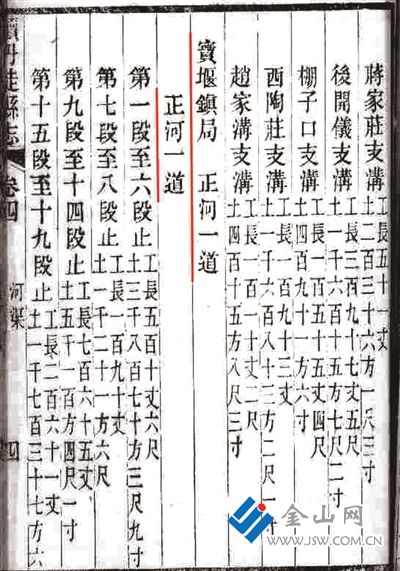 蔣家莊支溝 工長五十一丈
土二百三十六方一尺三寸
後開儀支溝 工長三百九十七丈五尺
土一千六百十五方七尺二寸
棚子口支溝 工長一百十五丈四尺
土四百九十一方六寸
西陶莊支溝 工長一百九十三丈
土一千一百八十三方二尺一寸
趙家溝支溝 工長一百一十丈二尺
土四百十五方八尺三寸
寶堰鎮局 正河一道
正河一道
第一段至六段止 工長五百十丈六尺
土三千八百七十方三尺九寸
第七段至八段止 工長一百九十丈
土一千二十一方六尺
第九段至十四段止 工長七百六十五丈
土五千一百方四尺一寸
第十五段至十九段止 工長二百六十一丈
土一千七百三十七方六
續丹徒縣志 卷四 河渠 四
金山网
WWW.JSW.COM.CN